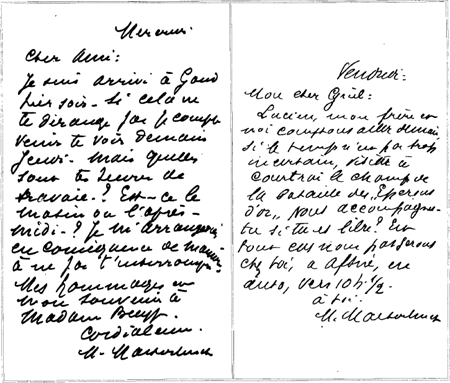 Mercredi
Cher Ami:
Je suis arrivé à Gand
hier soir - Si cela ne
te dérange pas je compte
venir te voir demain
Jeudi - mais quelles
sont tes heures de
travail - ? Est-ce le
matin ou l'après-
midi - ? Je m'arrangerai
en conséquence de manière
à ne pas t'interrompre.
Mes hommages et
mon souvenir à
Madame
Cordialement.
M. Maeterlinck
Vendredi:
Mon cher
Lucien, mon frère et
moi comptons aller demain,
si le temps n'est pas trop
incertain, visiter à
Courtrai le champ de
la bataille des „Eperons
d'or„ Nous accompagnes-
tu si tu es libre? En
tout cas nous passerons
chez toi, à Astené, en
auto, vers 10 h. 1/2.
à toi.
M. Maeterlinck